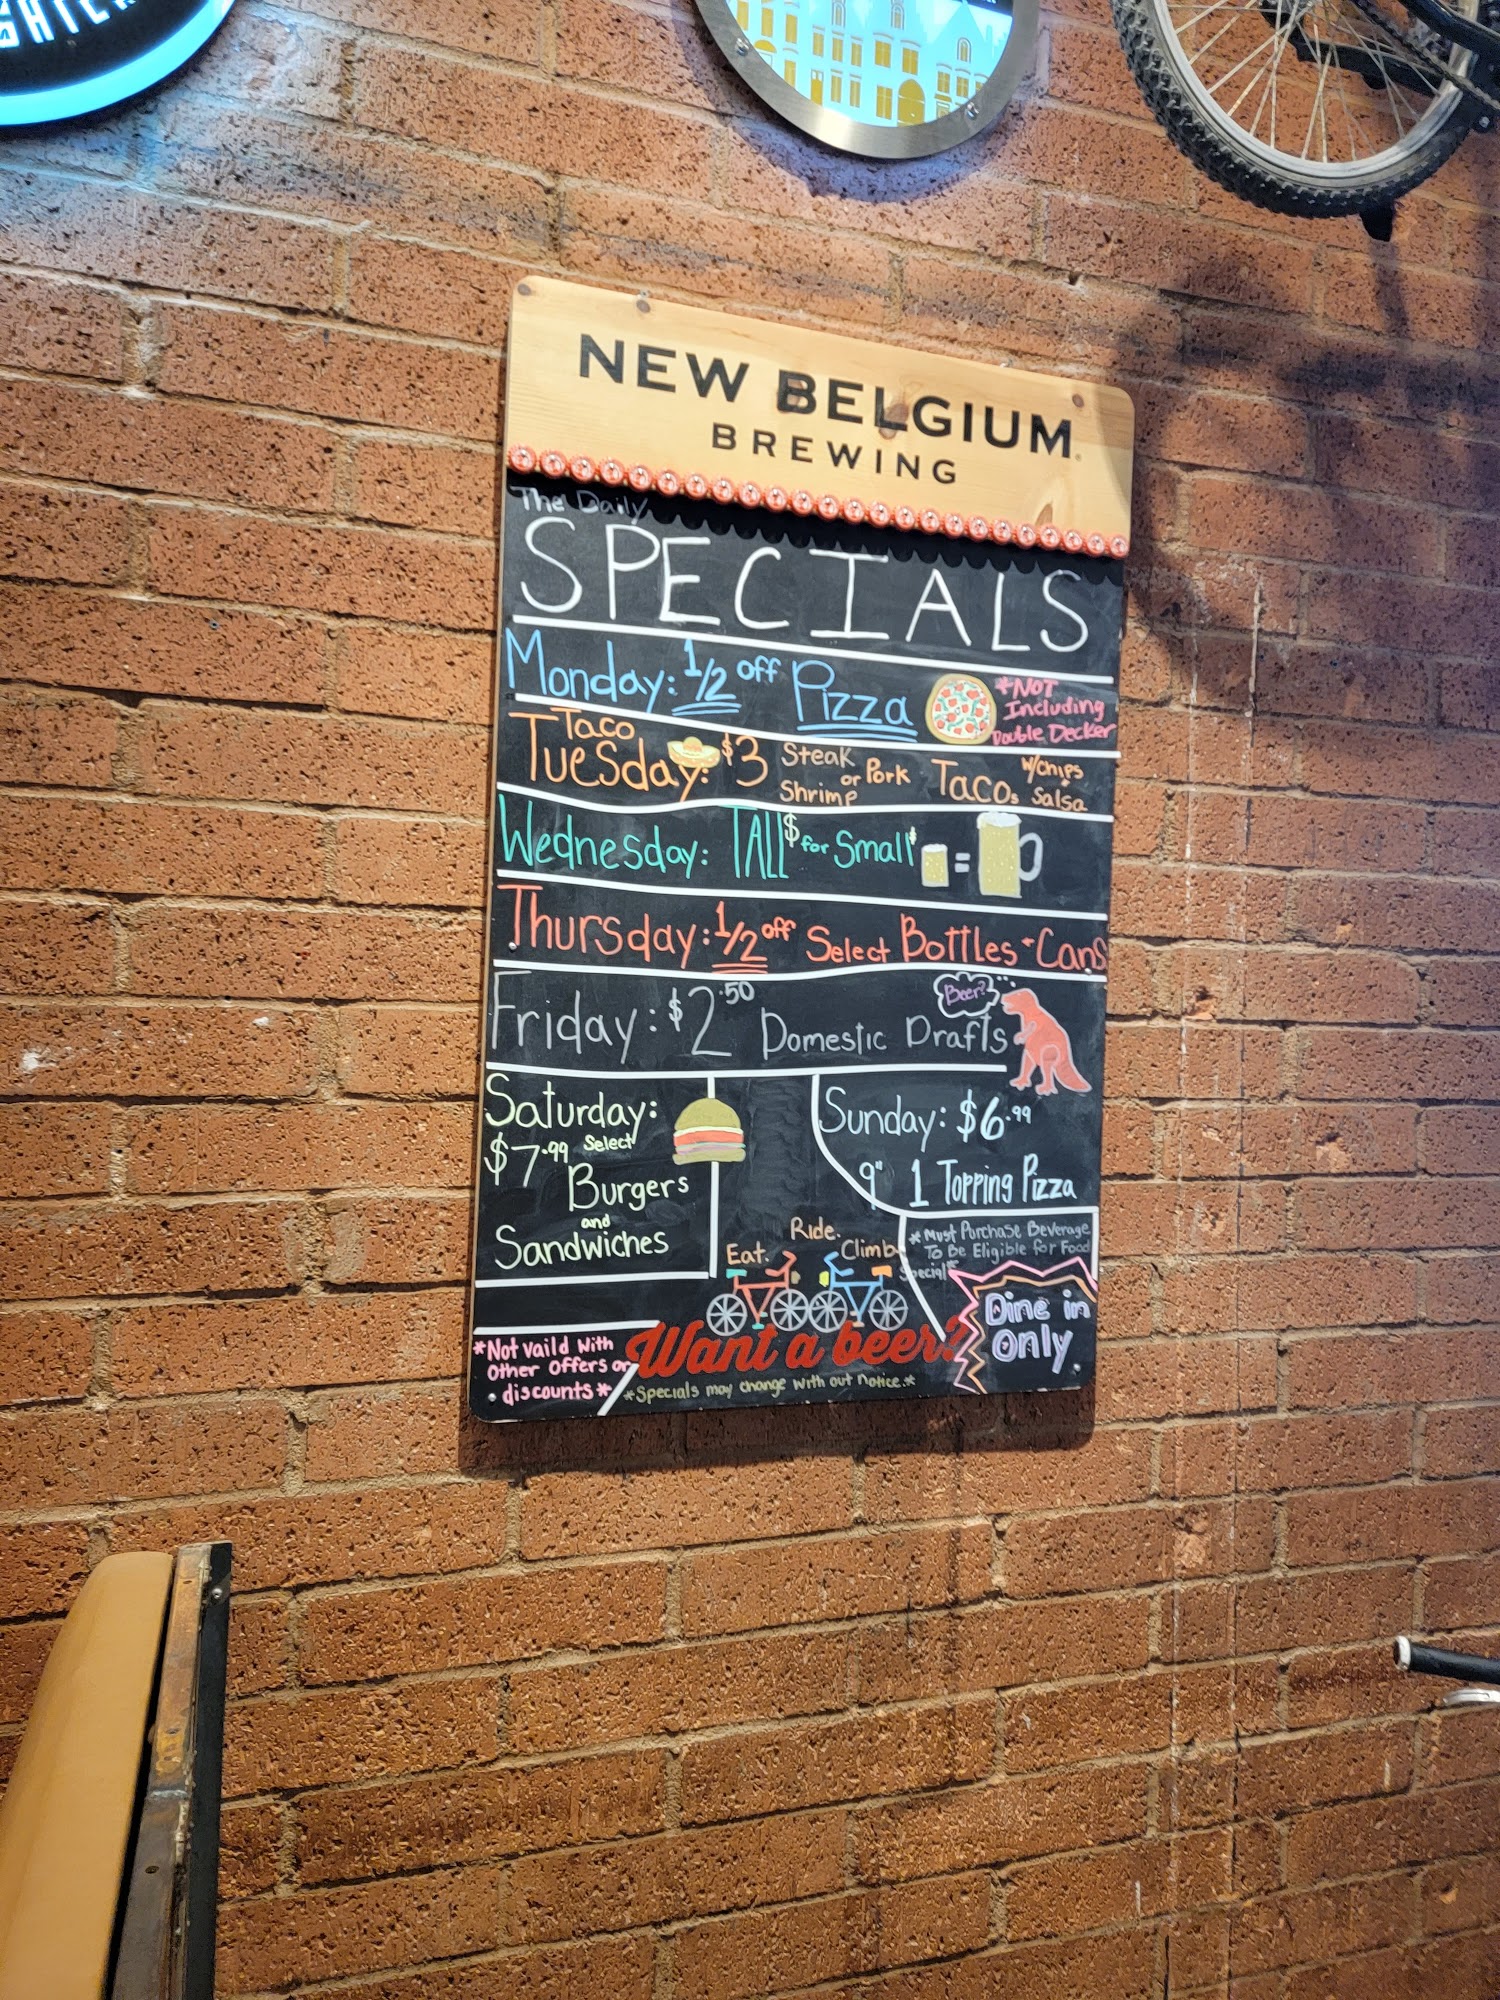 NEW BELGIUM
BREWING
The Daily
SPECIALS
Monday: 1/2 off Pizza
*NOT
Including
Double Decker
Taco
Tuesday: $3 Steak or Pork Shrimp Tacos w/chips Salsa
Wednesday: TALL$ for Small$ =
Thursday: 1/2 off Select Bottles + Cans
Beer?
Friday: $2.50 Domestic Drafts
Saturday:
$7.99 Select
Burgers
and
Sandwiches
Sunday: $6.99
9" 1 Topping Pizza
*Must Purchase Beverage
To Be Eligible for Food
Special*
Eat. Ride. Climb
Dine in
only
Want a beer?
*Not vaild with
other offers or
discounts*
*Specials may change with out notice.*